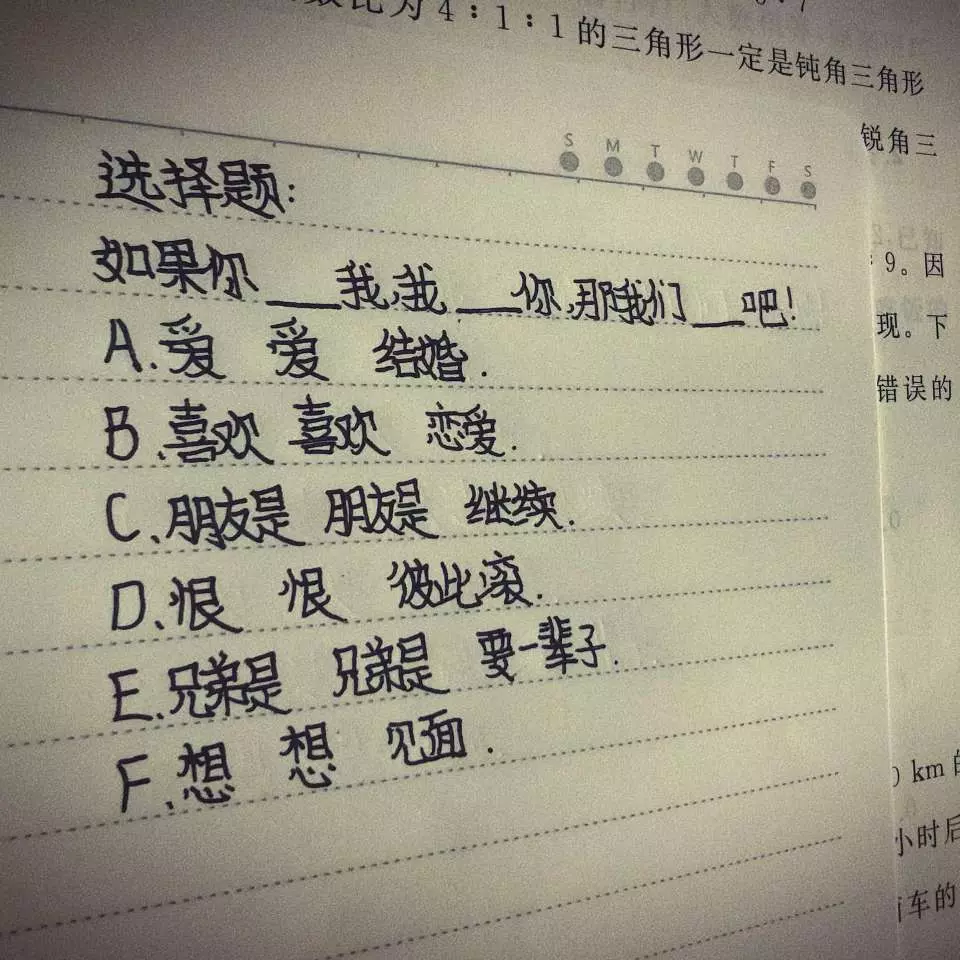 比为4∶1∶1的三角形一定是钝角三角形
锐角三
S M T W T F S
选择题:
如果你___我,我___你,那我们___吧!
A.爱 爱 结婚.
B.喜欢 喜欢 恋爱.
C.朋友是 朋友是 继续.
D.恨 恨 彼此滚.
E.兄弟是 兄弟是 要一辈子.
F.想 想 见面.
9。因
现。下
错误的
km的
小时后
车的